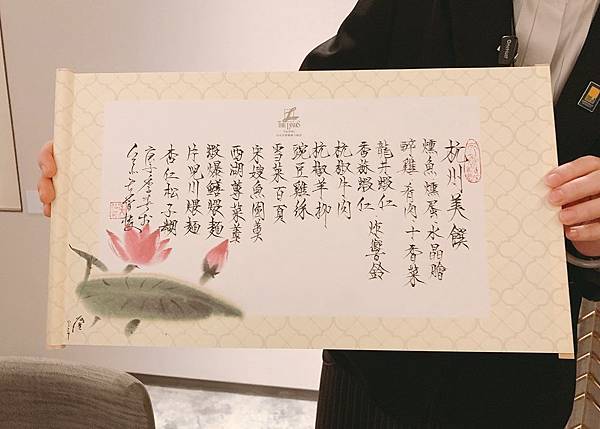 杭州美饌
燻魚 燻蛋 水晶膾
醉雞 香肉 十香菜
龍井蝦仁 炸響鈴
香菇蝦仁
杭椒牛肉
杭椒羊柳
豌豆雞絲
雪菜百頁
宋嫂魚圓羹
西湖蓴菜羹
蝦爆鱔蝦麵
片兒川煨麵
杏仁松子糊
THE LANDIS